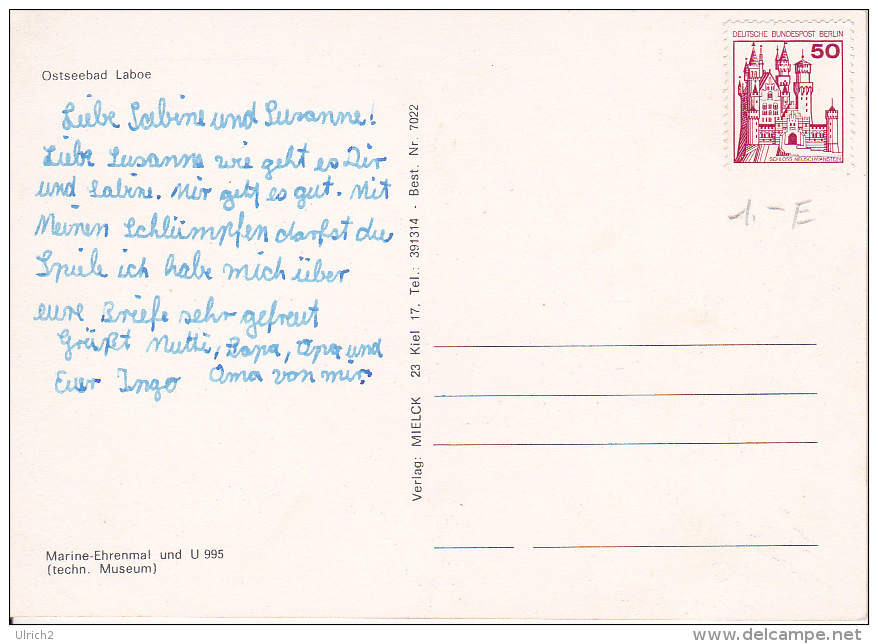 Ostseebad Laboe
Liebe Sabine und Susanne!
Liebe Susanne wie geht es Dir
und Sabine. Mir geht es gut. Mit
Meinen Schlümpfen darfst du
Spiele ich habe mich über
eure Briefe sehr gefreut
Grüßt Mutti, Papa, Opa und
Euer Ingo Oma von mir.
Marine-Ehrenmal und U 995
(techn. Museum)
Verlag: MIELCK 23 Kiel 17, Tel.: 391314 - Best. Nr. 7022
DEUTSCHE BUNDESPOST BERLIN
50
SCHLOSS NEUSCHWANSTEIN
1.- E
Ulrich2
www.delcampe.net